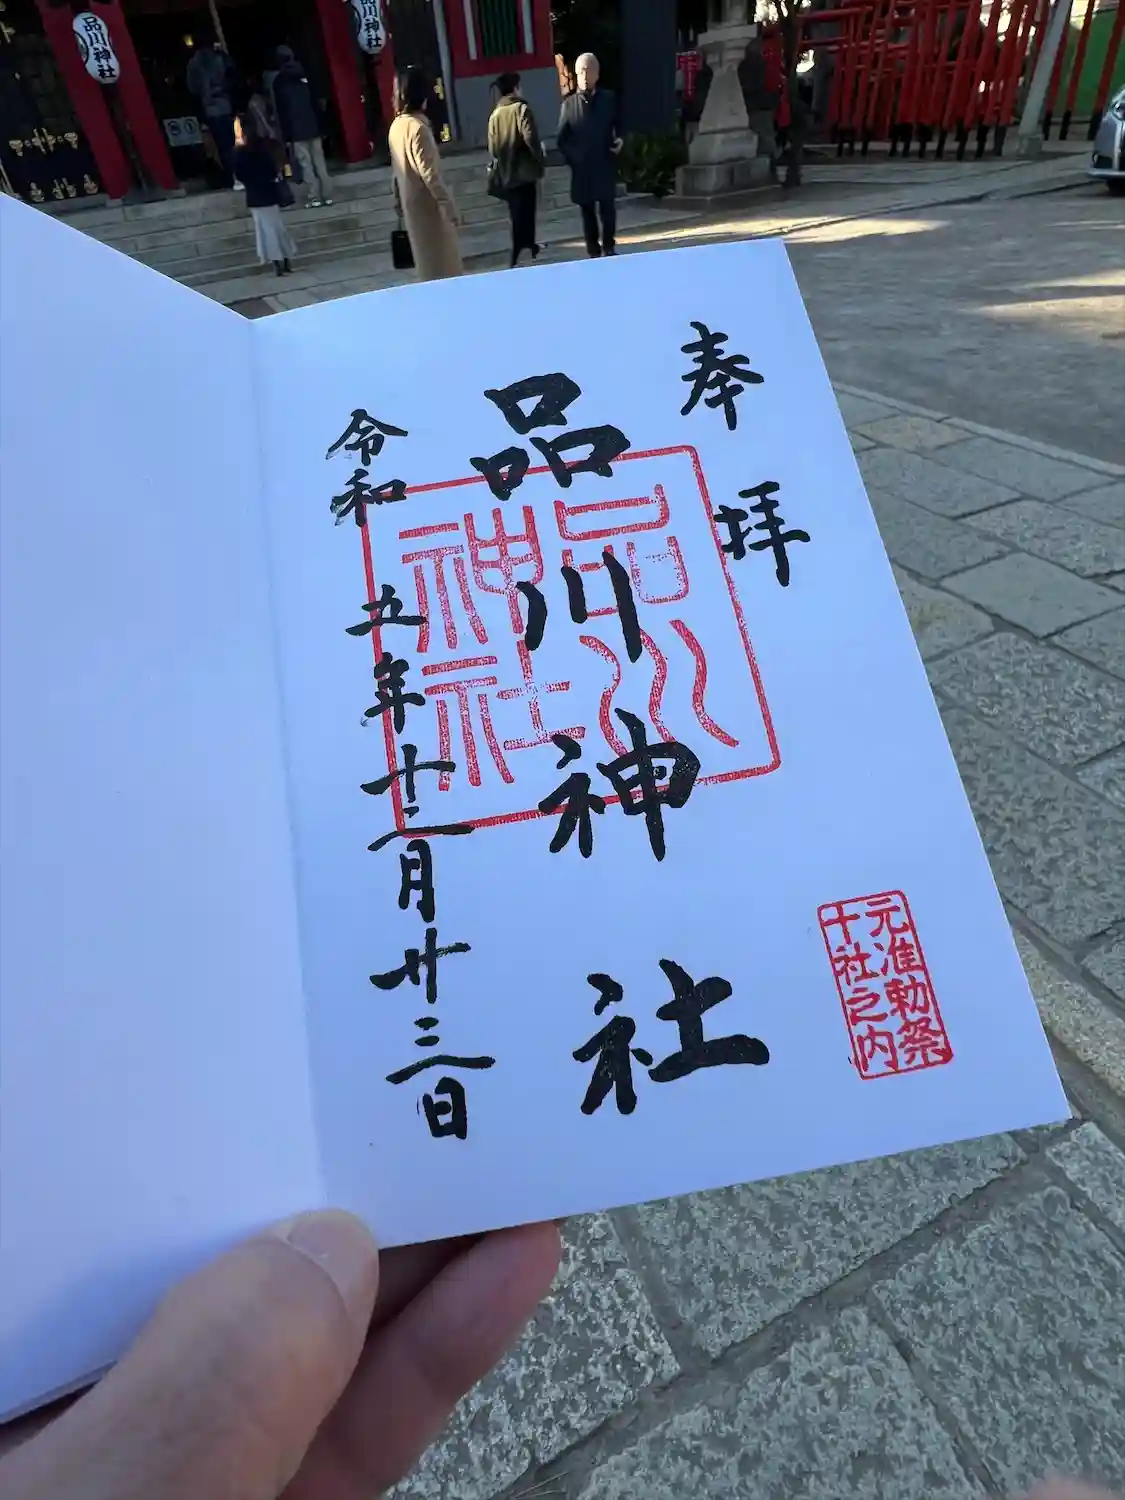 品川神社
品川神社
奉拝
品川神社
品川
神社
令和五年十二月廿三日
元准勅祭
十社之内